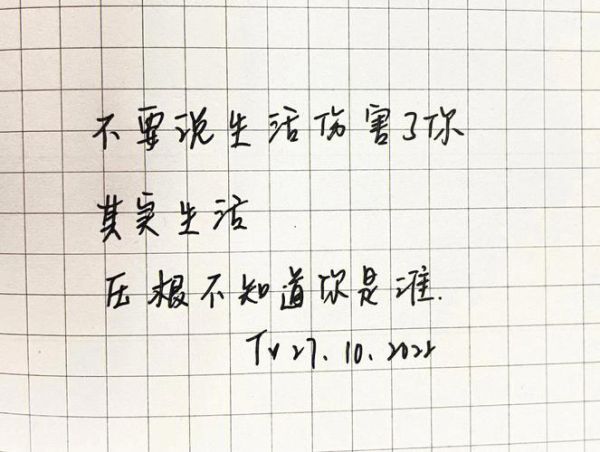 不要说生活伤害了你
其实生活
压根不知道你是谁.
Tv 27.10.2022